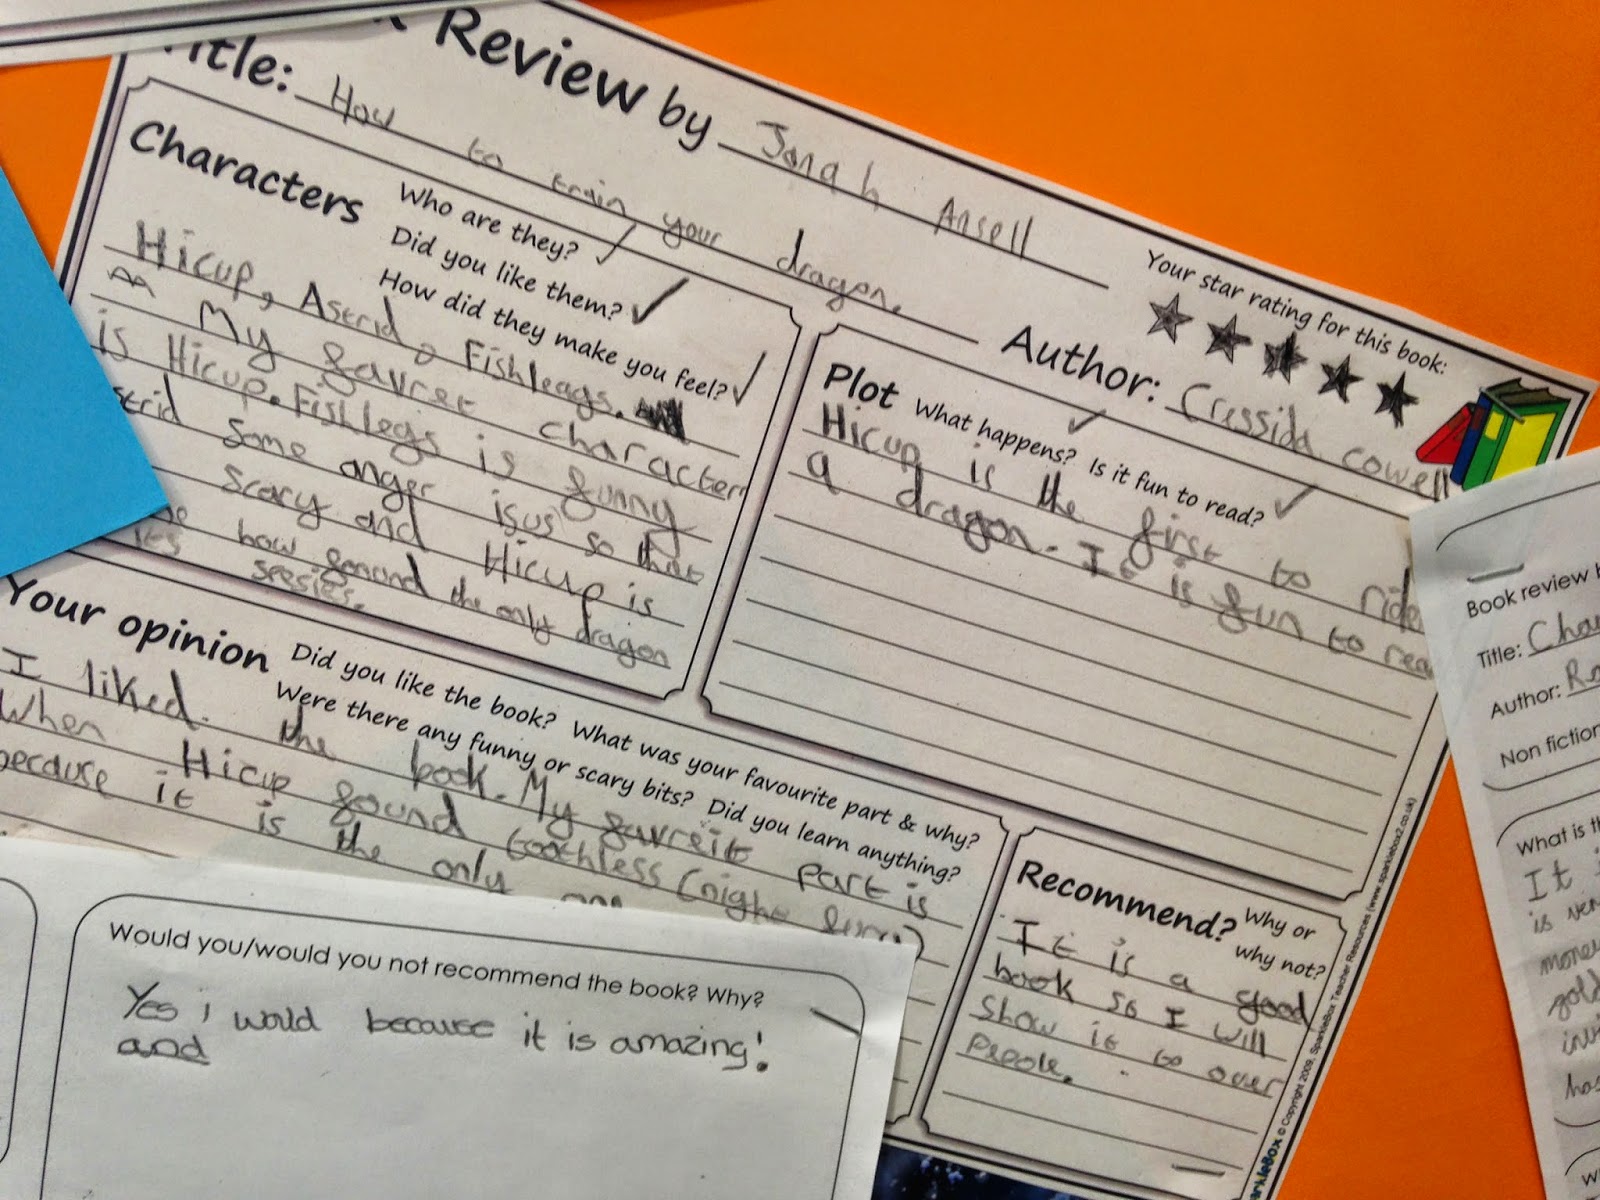 Review by Jonah Ansell
Title: How to train your dragon.
Your star rating for this book:
Author: Cressida cowell
Characters
Who are they?
Did you like them?
How did they make you feel?
Hicup, Astrid, Fishleags.
My favret character
is Hicup. Fishlegs is funny
strid some anger isus so that
scary and Hicup is
its how gonund the only dragon
Plot What happens? Is it fun to read?
Hicup is the first to ride
a dragon. It is fun to rea
Your opinion
Did you like the book? What was your favourite part & why?
Were there any funny or scary bits? Did you learn anything?
I liked. the book. My favreit part is
When Hicup found toothless (night
because it is the only
Recommend? Why or
why not?
It is a good
book so I will
show it to over
People.
© Copyright 2009, SparkleBox Teacher Resources (www.sparklebox2.co.uk)
Would you/would you not recommend the book? Why?
Yes i would because it is amazing!
and
Book review b
Title: Char
Author: Ro
Non fiction
What is th
It i
is ver
money
gold
invi
has